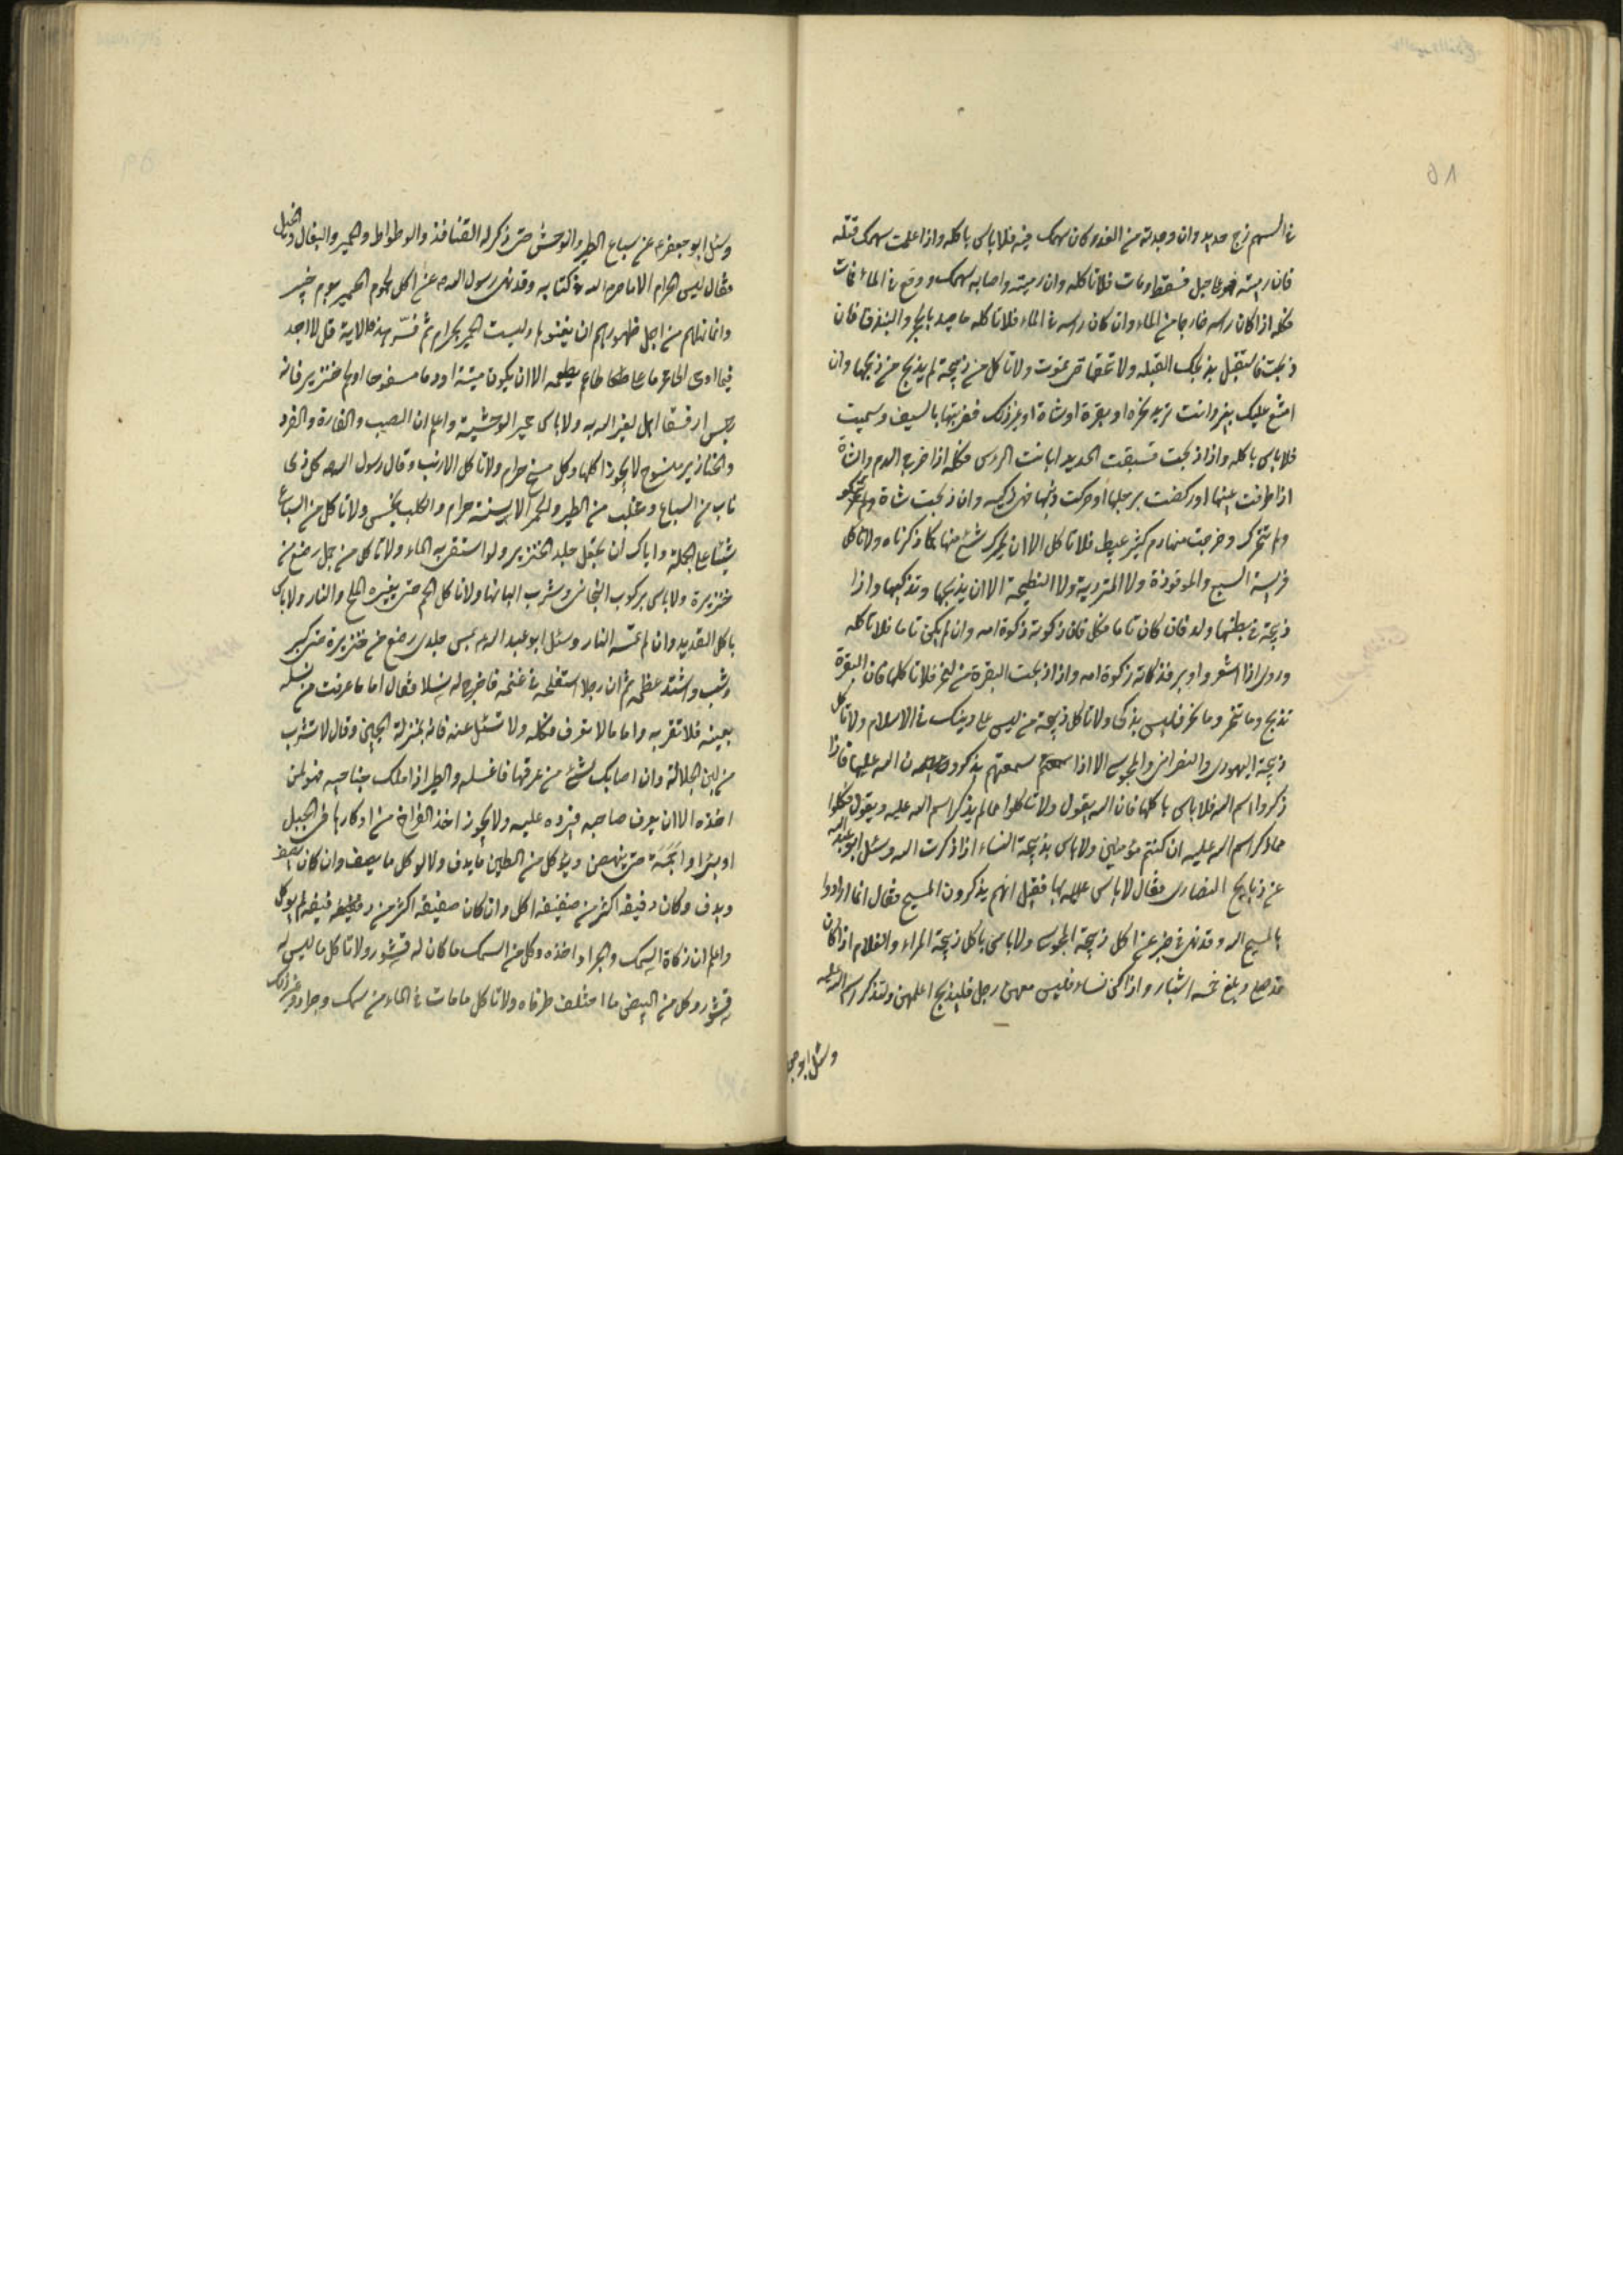 ٥٨
في السهم زج حديد وان وجدته من الغد وكان سهمك فيه فلا باس باكله واذا علمت سهمك قتله
فان رميته على جبل فسقط ومات فلا تاكله وان رميته واصابه سهمك ووقع في الماء فمات
فكله اذا كان راسه خارجا من الماء وان كان راسه في الماء فلا تاكله ما صيد بالحجر والبندق فان
ذبحت فاستقبل بذبحك القبلة ولا تنخعها حتى تموت ولا تاكل من ذبيحة لم يذبح من ذبحها وان
امتنع عليك بعير وانت تريد نحره او بقرة او شاة او غير ذلك فضربتها بالسيف وسميت
فلا باس باكله واذا ذبحت فسبقت الحديد ابانت الراس فكله اذا خرج الدم والشاة
اذا طرفت عينها او ركضت برجلها او حركت ذنبها فهي ذكيه وان ذبحت شاة
ولم تتحرك وخرج منها دم كثير عبيط فلا تاكل الا ان يتحرك شئ منها كما ذكرناه ولا تاكل
فريسة السبع والموقوذة ولا المتردية ولا النطيحة الا ان يذبحها وتذكيها واذا
ذبيحة في بطنها ولد فان كان تاما فكل فان ذكوته ذكوة امه وان لم يكن تاما فلا تاكله
وروى اذا اشعر واوبر فذكاته ذكوة امه واذا ذبحت البقرة من المنحر فلا تاكلها فان البقرة
تذبح وما تنحر وما نحر فليس بذكى ولا تاكل ذبيحة من ليس على دينك في الاسلام ولا تاكل
ذبيحة اليهودى والنصرانى والمجوسى الا اذا سمعتهم يذكرون اسم الله عليها فاذا
ذكروا اسم الله فلا باس باكلها فان الله يقول ولا تاكلوا مما لم يذكر اسم الله عليه ويقول فكلوا
مما ذكر اسم الله عليه ان كنتم مؤمنين ولا باس بذبيحة النساء اذا ذكرت الله وسئل ابو عبد الله
عن ذبايح النصارى فقال لا باس بها فقيل انهم يذكرون المسيح فقال انما ارادوا
بالمسيح الله وقد نهى في خبر عن اكل ذبيحة المجوسى ولا باس باكل ذبيحة المراة والغلام اذا كان
قد صلى وبلغ خمسة اشبار واذا كن نساء فليس معهن رجل فليذبح اعلمهن ولتذكر اسم الله عليه
وسئل ابو جعفر
وسئل ابو جعفر ع عن سباع الطير والوحش حتى ذكر له القنافذ والوطواط والحمير والبغال والخيل
فقال ليس الحرام الا ما حرم الله في كتابه وقد نهى رسول الله ص عن اكل لحوم الحمير يوم خيبر
وانما نهاهم من اجل ظهورهم ان يفنوها وليست الحمير بحرام ثم فسر هذه الاية قل لا اجد
فيما اوحى الى محرما على طاعم يطعمه الا ان يكون ميتة او دما مسفوحا او لحم خنزير فانه
رجس او فسقا اهل لغير الله به ولا باس بحمير الوحشية واعلم ان الضب والفارة والقرد
والخنازير مسوخ لا يجوز اكلها وكل مسخ حرام ولا تاكل الارنب وقال رسول الله ص كل ذى
ناب من السباع ومخلب من الطير والحمر الانسية حرام والكلب نجس ولا تاكل من السباع
شيئا على الجملة واياك ان تجعل جلد الخنزير دلوا تستقى به الماء ولا تاكل من جمل رضع من
خنزيرة ولا باس بركوب البخاتى وشرب البانها ولا تاكل اللحم حتى يغيره الملح والنار ولا باس
باكل القديد وان لم تمسه النار وسئل ابو عبد الله ع عن جدى رضع من خنزيرة حتى كبر
وشب واشتد عظمه ثم ان رجلا استفحله في غنمه فاخرج له نسلا فقال اما ما عرفت من نسله
بعينه فلا تقربه واما ما لا تعرف فكله ولا تسئل عنه فانه بمنزلة الجبن وقال لا تشرب
من لبن الجلالة وان اصابك شئ من عرقها فاغسله والطير اذا ملك جناحيه فهو لمن
اخذه الا ان يعرف صاحبه فيرده عليه ولا يجوز اخذ الفراخ من اوكارها في الجبل
او بئر او اجمة حتى ينهض ويؤكل من الطير ما يدف ولا يوكل ما يصف وان كان يصف
ويدف وكان دفيفه اكثر من صفيفه اكل وان كان صفيفه اكثر من دفيفه لم يوكل
واعلم ان ذكاة السمك والجراد اخذه وكل من السمك ما كان له قشور ولا تاكل ما ليس له
قشور وكل من البيض ما اختلف طرفاه ولا تاكل ما مات في الماء من سمك وجراد وغير ذلك